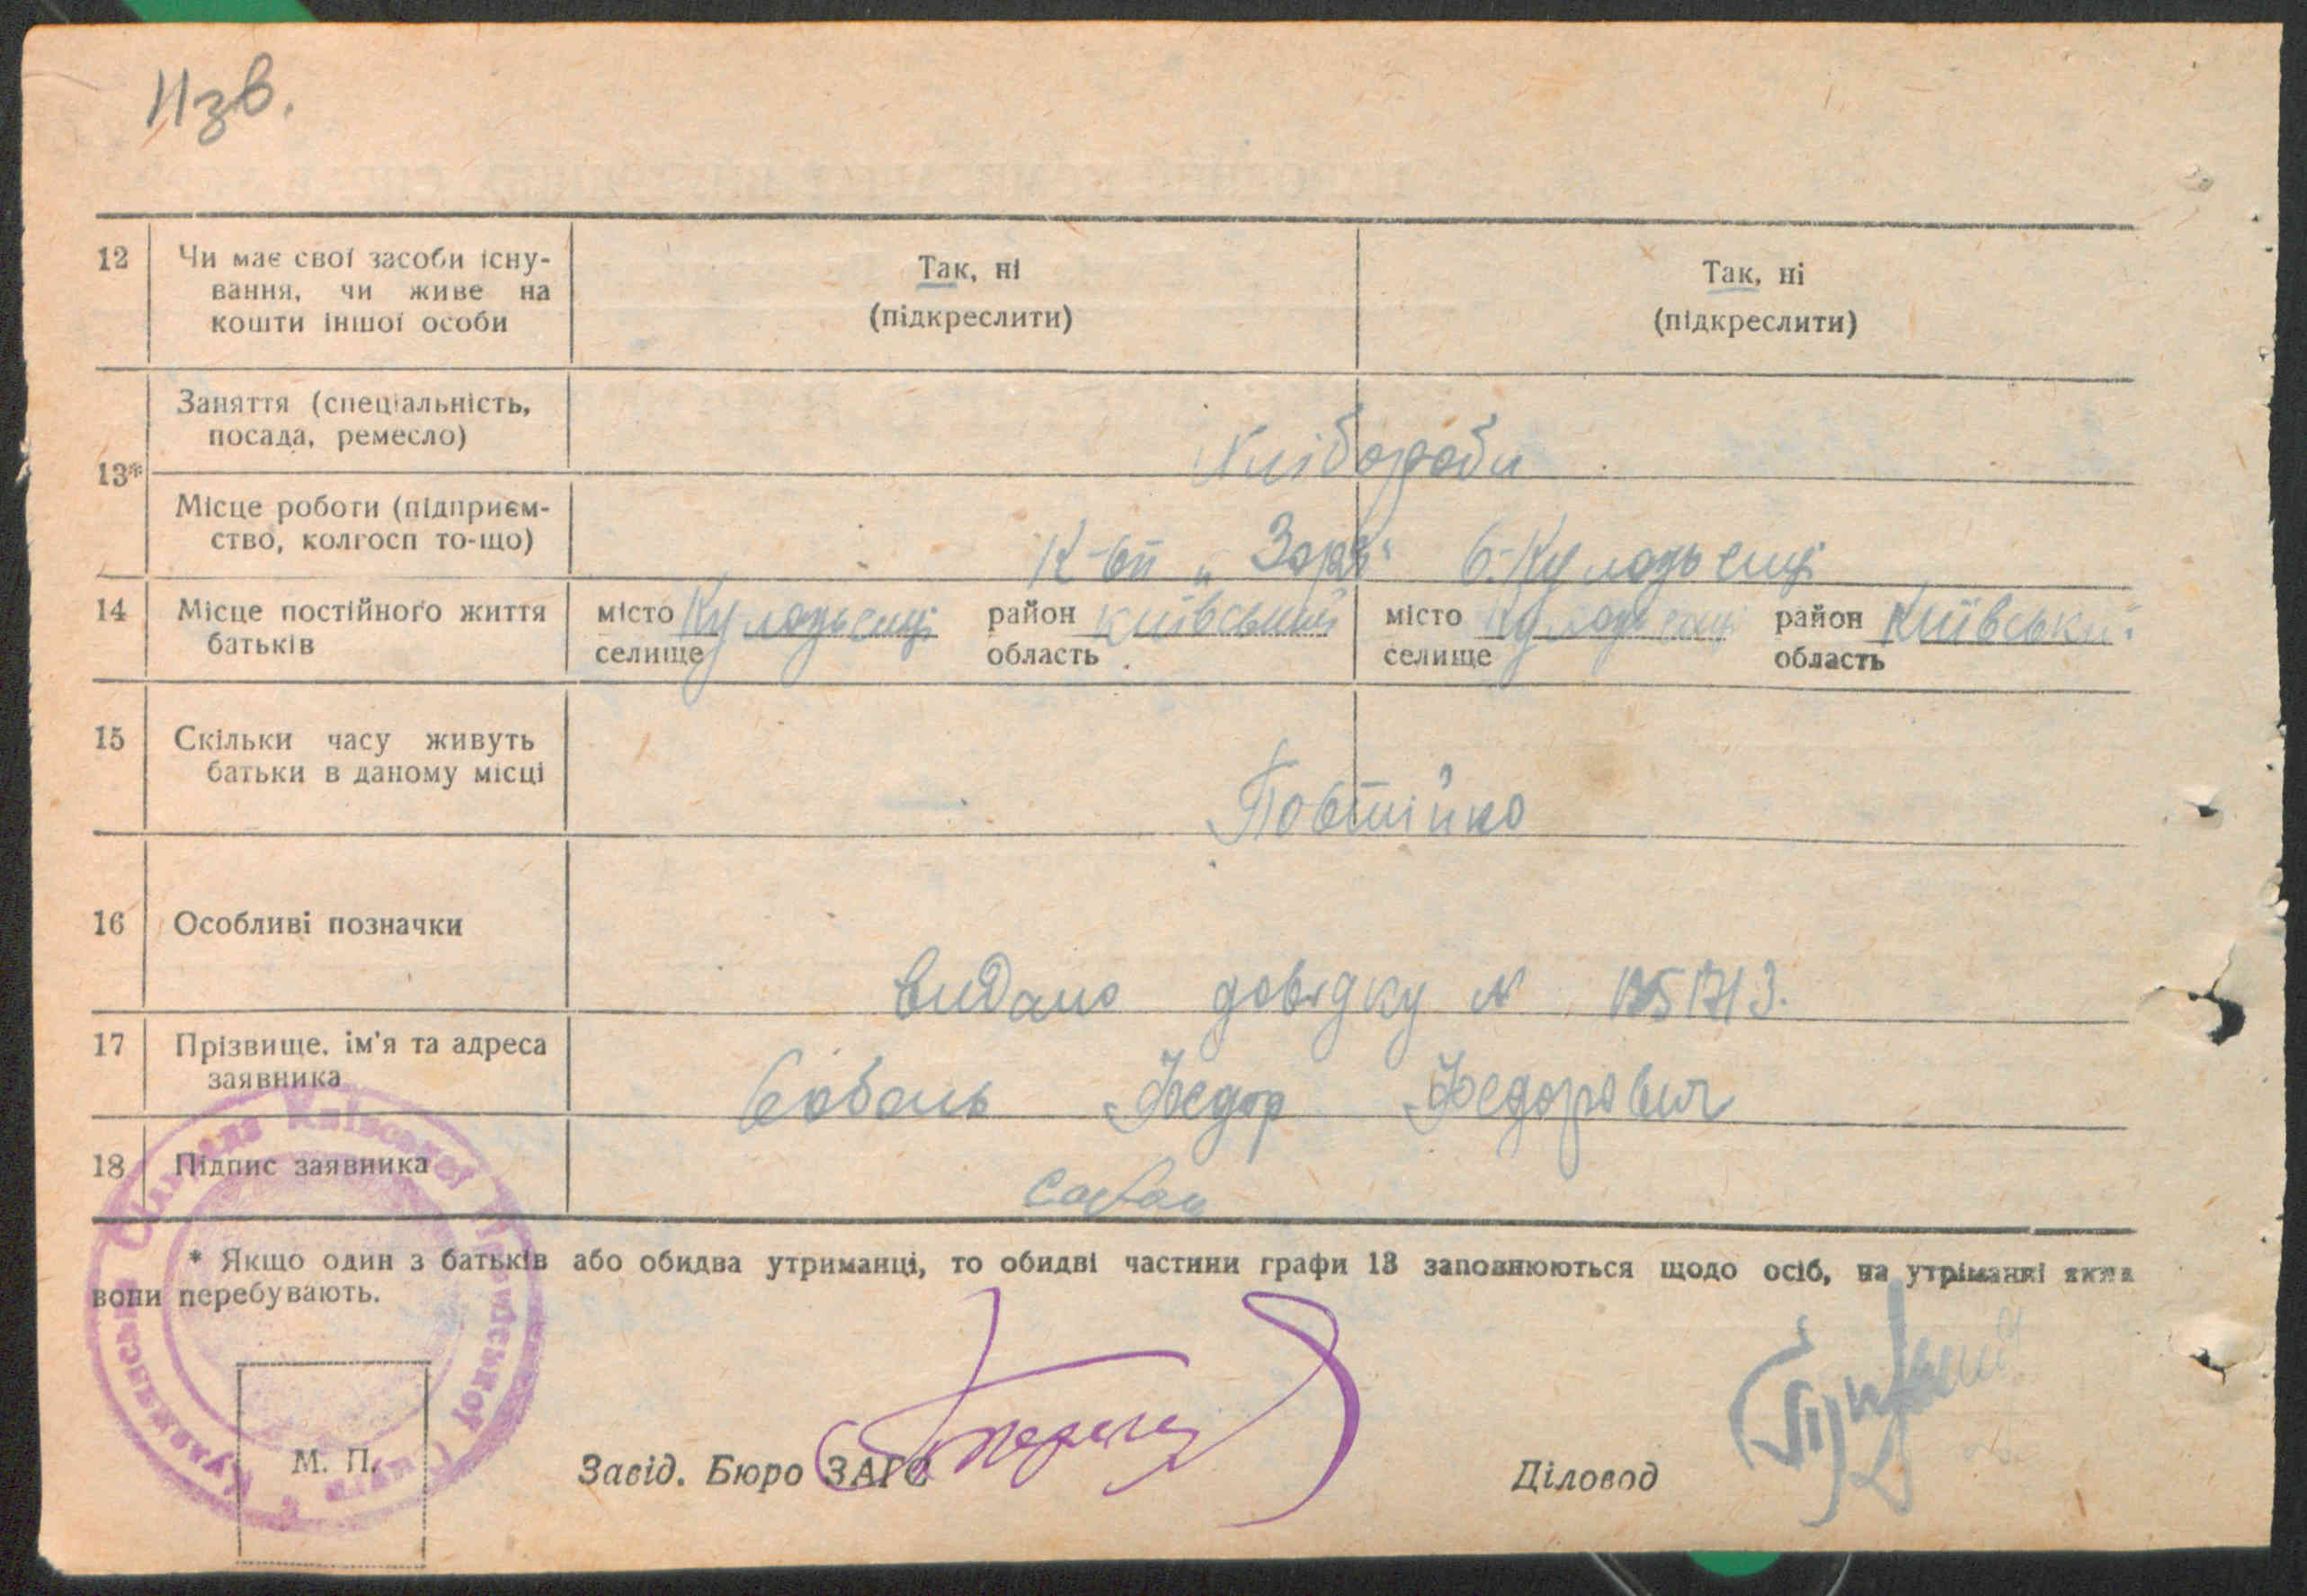 11зв.
12 Чи має свої засоби існу- Так, ні Так, ні
вання, чи живе на (підкреслити) (підкреслити)
кошти іншої особи
Заняття (спеціальність,
посада, ремесло) Хлібороби
13*
Місце роботи (підприєм-
ство, колгосп то-що) К-сп „Зоря" с.
14 Місце постійного життя місто район київський місто район Київськи
батьків селище область селище область
15 Скільки часу живуть
батьки в даному місці Постійно
16 Особливі позначки
видано довідку №
17 Прізвище, ім'я та адреса
заявника Собань Федор Федорович
18 Підпис заявника
* Якщо один з батьків або обидва утриманці, то обидві частини графи 13 заповнюються щодо осіб, на утріманні яких
вони перебувають.
М. П. Завід. Бюро ЗАГС Діловод